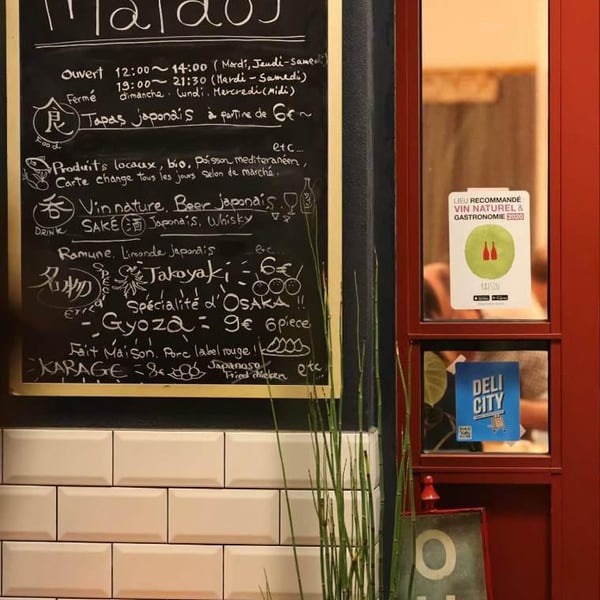 Ouvert 12:00~14:00 (Mardi, Jeudi-Samedi)
19:00~21:30 (Mardi-Samedi)
Fermé dimanche. lundi. Mercredi (Midi)
食 Food
Tapas japonais à partine de 6€~
etc...
Produits locaux, bio, Poisson mediteranéen,
Carte change tous les jours selon de marché.
呑 DRINK
Vin nature, Beer japonais.
SAKÉ 酒 Japonais. Whisky
Ramune. Limonde japonais ... etc...
名物
Takoyaki 6€
Spécialité d'OSAKA !!
Gyoza 9€ 6piece
Fait Maison. Porc label rouge!
KARAGE 8€ Japonaise Fried chicken etc...
LIEU RECOMMANDÉ
VIN NATUREL &
GASTRONOMIE 2020
RAISIN
DELI
CITY
O